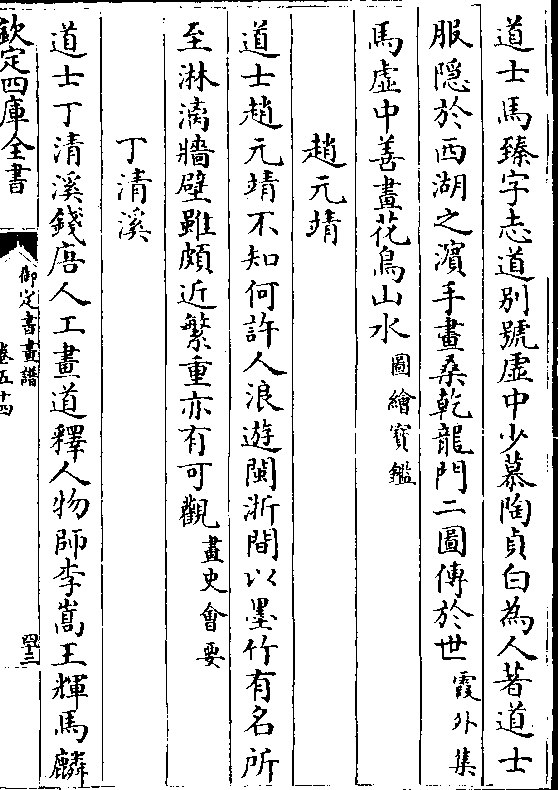 道士馬臻字志道別號虛中少慕陶貞白為人著道士
服隱於西湖之濵手畫桑乾龍門二圖傳於世霞外集
馬虛中善畫花鳥山水圖繪寳鑑
趙元靖
道士趙元靖不知何許人浪遊閩浙間以墨竹有名所
至淋漓牆壁雖頗近繁重亦有可觀畫史會要
丁清溪
道士丁清溪錢唐人工畫道釋人物師李嵩王輝馬麟
欽定四庫全書
御定書畫譜
卷五十四
四十三